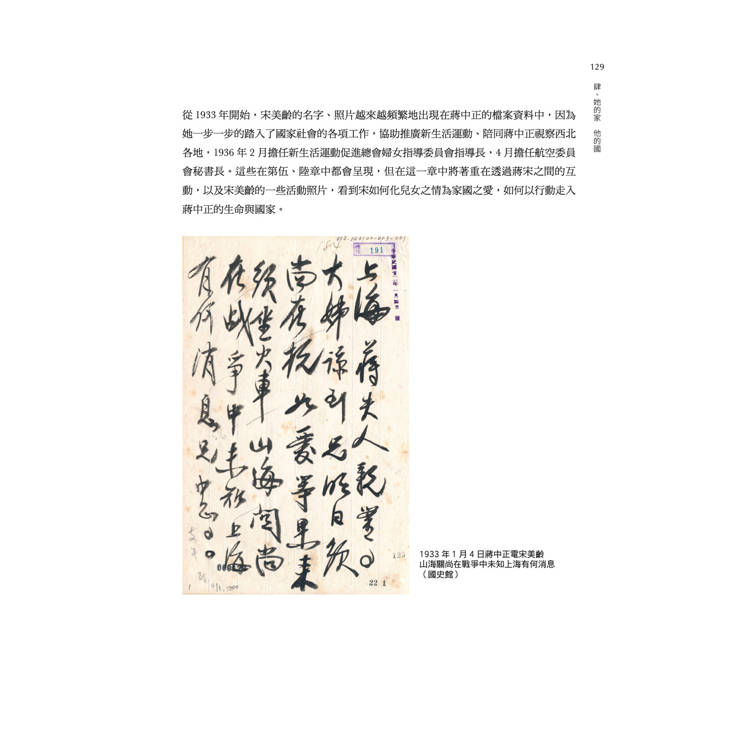 129
肆、她的家 他的國
從 1933 年開始,宋美齡的名字、照片越來越頻繁地出現在蔣中正的檔案資料中,因為
她一步一步的踏入了國家社會的各項工作,協助推廣新生活運動、陪同蔣中正視察西北
各地,1936 年 2 月擔任新生活運動促進總會婦女指導委員會指導長,4 月擔任航空委員
會秘書長。這些在第伍、陸章中都會呈現,但在這一章中將著重在透過蔣宋之間的互
動,以及宋美齡的一些活動照片,看到宋如何化兒女之情為家國之愛,如何以行動走入
蔣中正的生命與國家。
191
上海蔣夫人親鑒。
大姊諒到兄明日
尚在杭如愛等果來
須坐火車山海関尚
在战爭中未知上海
有何消息兄中正。
22 1
1933 年 1 月 4 日蔣中正電宋美齡
山海關尚在戰爭中未知上海有何消息
(國史館)